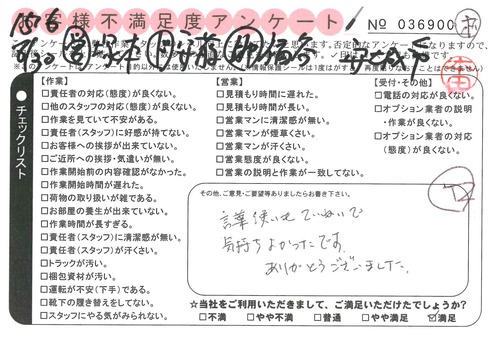 お客様不満足度アンケート
No 036900
【作業】
□責任者の対応(態度)が良くない。
□他のスタッフの対応(態度)が良くない。
□作業を見ていて不安がある。
□責任者(スタッフ)に好感が持てない。
□お客様への挨拶が出来ていない。
□ご近所への挨拶・気遣いが無い。
□作業開始前の内容確認がなかった。
□作業開始時間が遅れた。
□荷物の取り扱いが雑である。
□お部屋の養生が出来ていない。
□作業時間が長すぎる。
□責任者(スタッフ)に清潔感が無い。
□責任者(スタッフ)が汗くさい。
□トラックが汚い。
□梱包資材が汚い。
□運転が不安(下手)である。
□靴下の履き替えをしてない。
□スタッフにやる気がみられない。
チェックリスト
【営業】
□見積もり時間に遅れた。
□見積もり時間が長い。
□営業マンに清潔感が無い。
□営業マンが煙草くさい。
□営業マンが汗くさい。
□営業態度が良くない。
□営業の説明と作業が一致してない。
【受付・その他】
□電話の対応が良くない。
□オプション業者の説明
・作業が良くない。
□オプション業者の対応
(態度)が良くない。
その他、ご意見・ご要望等ありましたらお書き下さい。
言葉使いもていねいで
気持ちよかったです。
ありがとうございました。
☆当社をご利用いただきまして、ご満足いただけたでしょうか?
□不満 □やや不満 □普通 □やや満足 ☑満足